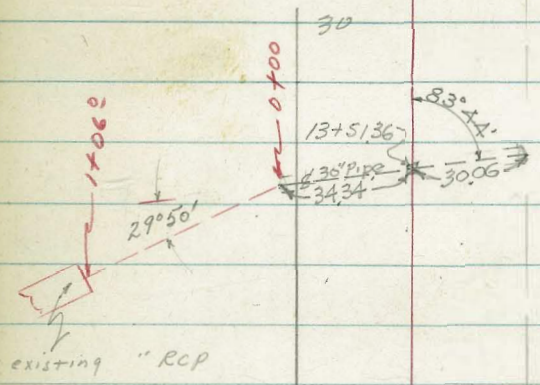 30
0+00
1+06º
83°44'
13+51.36
¢ 30" Pipe
34.34
30.06
29°50'
existing " RCP